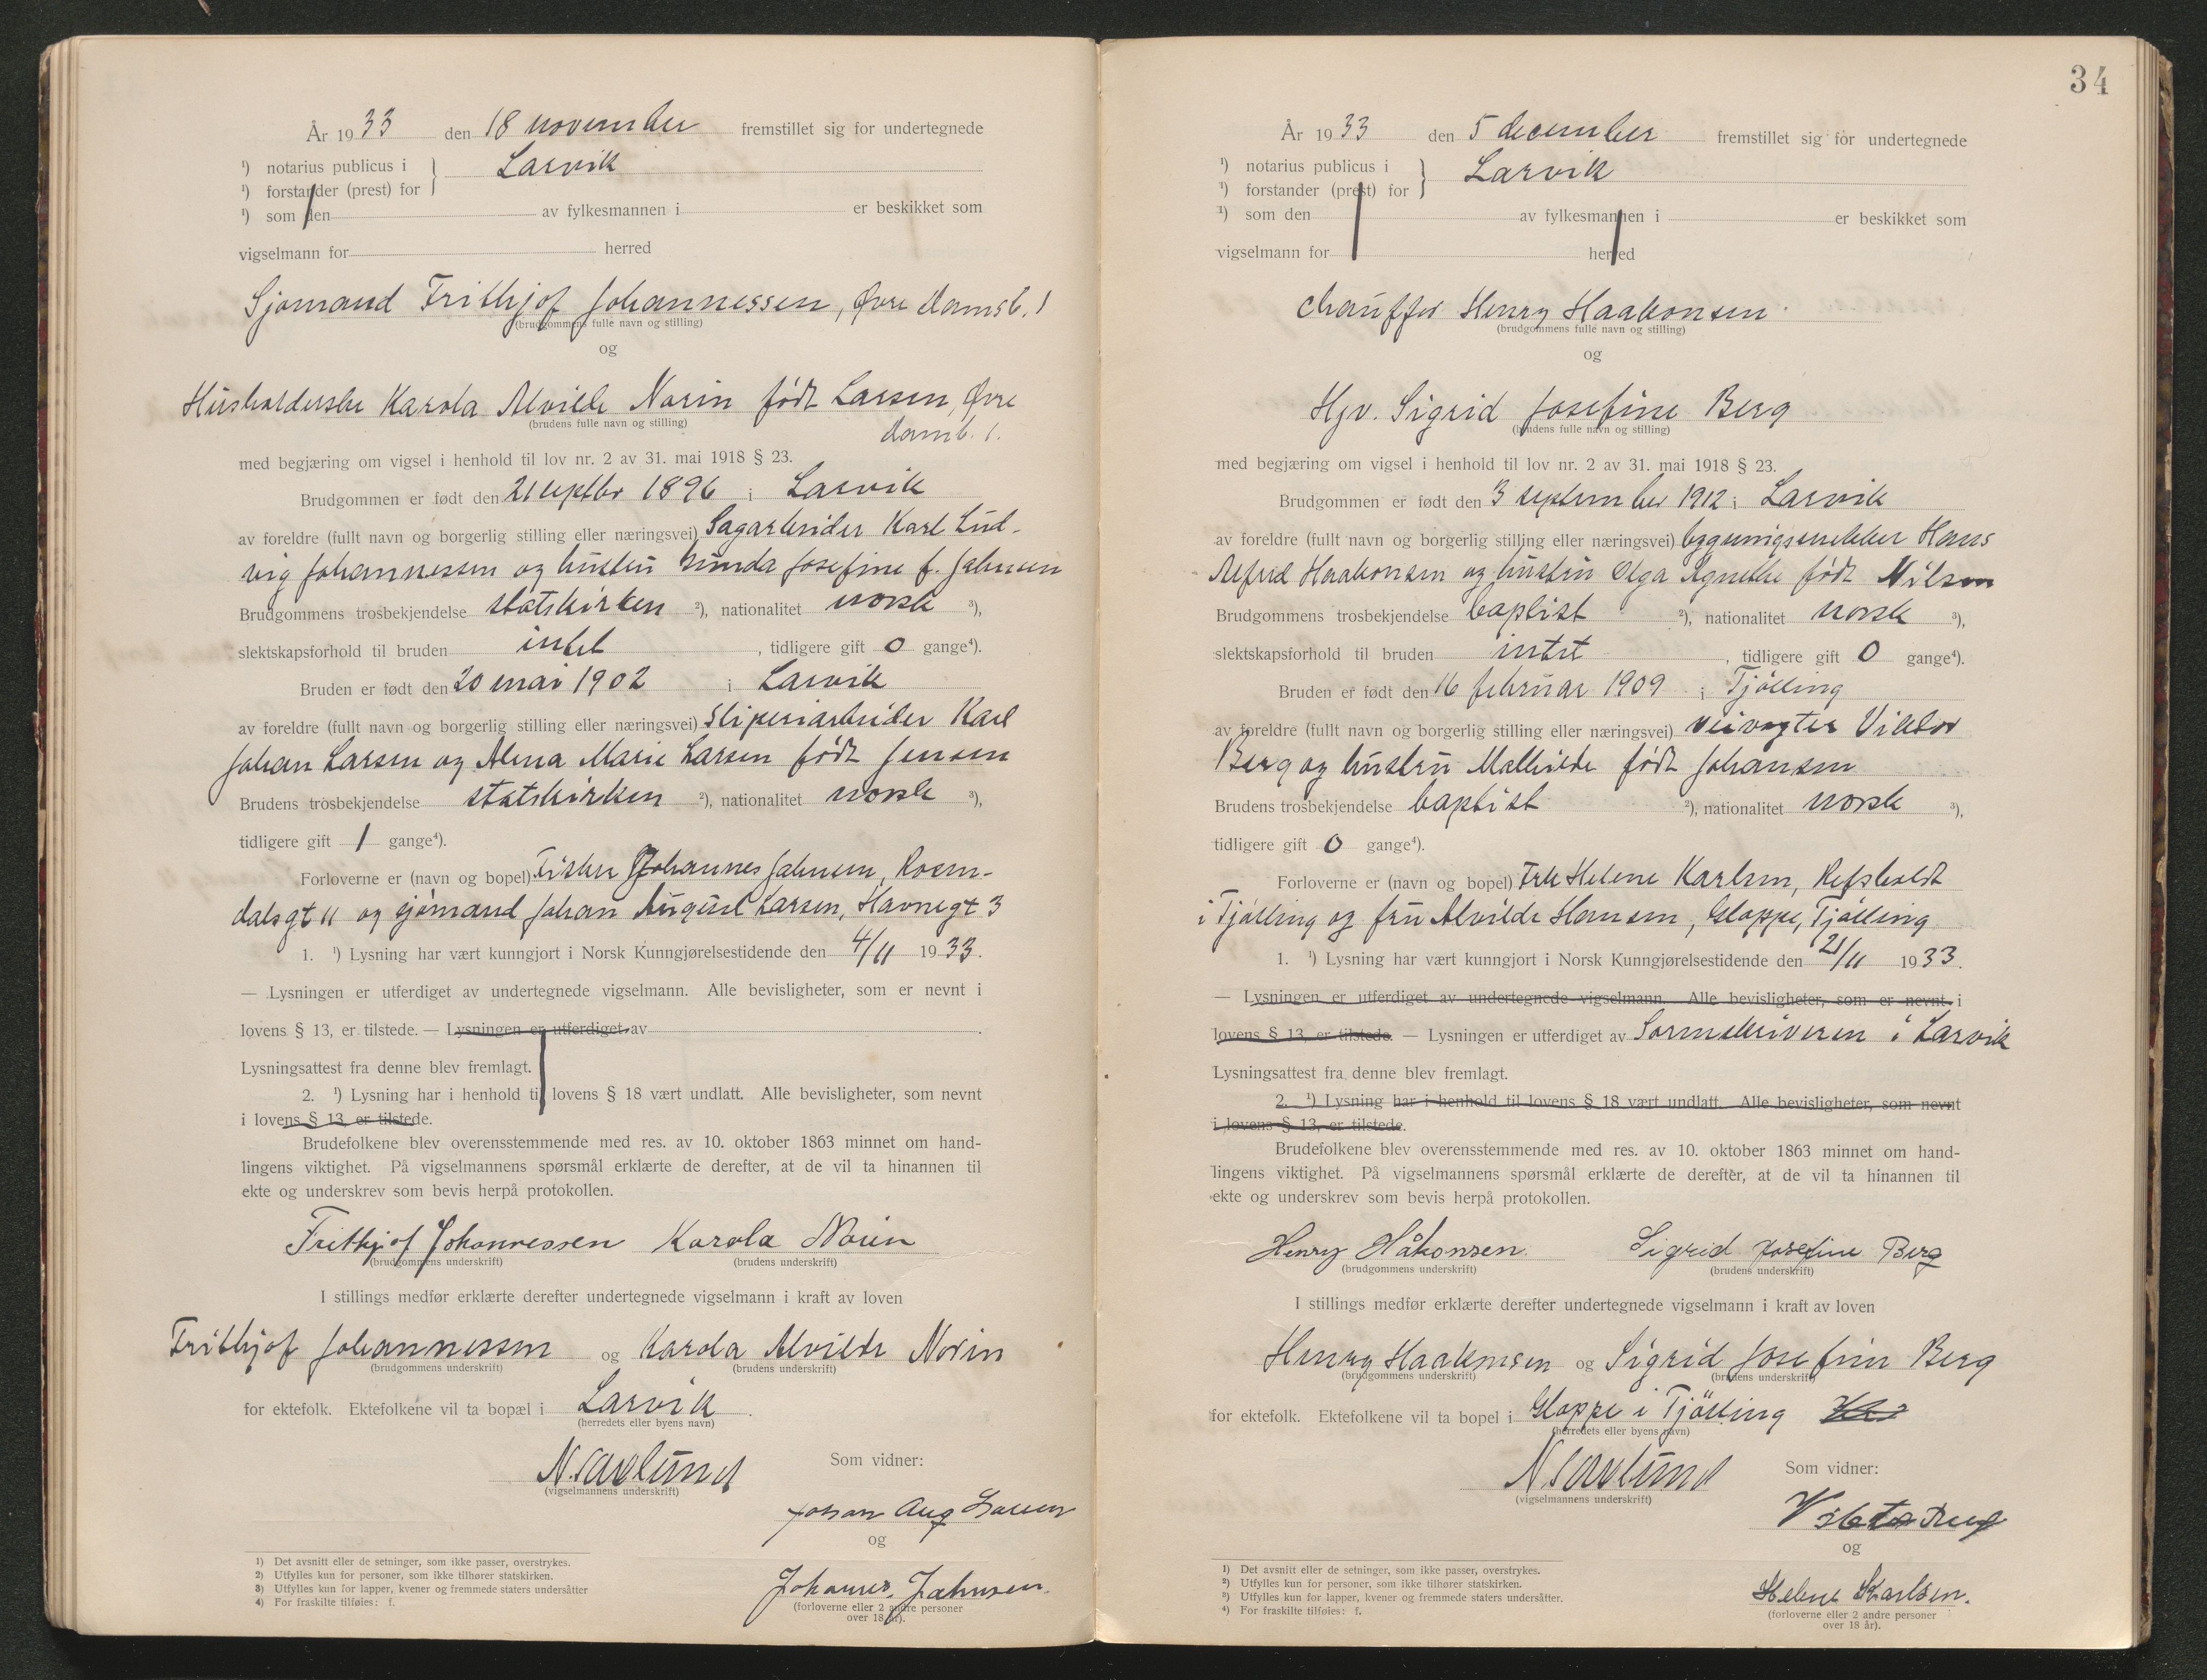 År 1933 den 18 november fremstillet sig for undertegnede
¹) notarius publicus i } Larvik
¹) forstander (prest) for
¹) som den av fylkesmannen i er beskikket som
vigselmann for herred
Sjømand Frithjof Johannessen, Øvre Damsb. 1
(brudgommens fulle navn og stilling)
og
Husholderske Karola Alvilde Norin født Larsen, Øvre
Damb. 1.
(brudens fulle navn og stilling)
med begjæring om vigsel i henhold til lov nr. 2 av 31. mai 1918 § 23.
Brudgommen er født den 21 septbr 1896 i Larvik
av foreldre (fullt navn og borgerlig stilling eller næringsvei) Sagarbeider Karl Lud-
vig Johannessen og hustru Josefine f. Jahnsen
Brudgommens trosbekjendelse statskirken ²), nationalitet norsk ³),
slektskapsforhold til bruden intet , tidligere gift 0 gange⁴).
Bruden er født den 20 mai 1902 i Larvik
av foreldre (fullt navn og borgerlig stilling eller næringsvei) Sliperiarbeider Karl
Johan Larsen og Alma Marie Larsen født Jensen
Brudens trosbekjendelse statskirken ²), nationalitet norsk ³),
tidligere gift 1 gange⁴).
Forloverne er (navn og bopel) Fisker Johannes Jahnsen, Rosen-
dalsgt 11 og sjömand Johan August Larsen, Havnegt 3
1. ¹) Lysning har vært kunngjort i Norsk Kunngjørelsestidende den 4/11 1933.
— Lysningen er utferdiget av undertegnede vigselmann. Alle bevisligheter, som er nevnt i
lovens § 13, er tilstede. — Lysningen er utferdiget av .
Lysningsattest fra denne blev fremlagt.
2. ¹) Lysning har i henhold til lovens § 18 vært undlatt. Alle bevisligheter, som nevnt
i lovens § 13, er tilstede.
Brudefolkene blev overensstemmende med res. av 10. oktober 1863 minnet om hand-
lingens viktighet. På vigselmannens spørsmål erklærte de derefter, at de vil ta hinannen til
ekte og underskrev som bevis herpå protokollen.
Frithjof Johannessen Karola Norin
(brudgommens underskrift) (brudens underskrift)
I stillings medfør erklærte derefter undertegnede vigselmann i kraft av loven
Frithjof Johannessen og Karola Alvilde Norin
(brudgommens underskrift) (brudens underskrift)
for ektefolk. Ektefolkene vil ta bopæl i Larvik .
(herredets eller byens navn)
N. Saxlund Som vidner:
(vigselmannens underskrift)
Johan Aug Larsen
og
Johannes Jahnsen.
(forloverne eller 2 andre personer
over 18 år).
1) Det avsnitt eller de setninger, som ikke passer, overstrykes.
2) Utfylles kun for personer, som ikke tilhører statskirken.
3) Utfylles kun for lapper, kvener og fremmede staters undersåtter
4) For fraskilte tilføies: f.
34
År 1933 den 5 december fremstillet sig for undertegnede
¹) notarius publicus i } Larvik
¹) forstander (prest) for
¹) som den av fylkesmannen i er beskikket som
vigselmann for herred
Chauffør Henry Haakonsen
(brudgommens fulle navn og stilling)
og
Hjv. Sigrid Josefine Berg
(brudens fulle navn og stilling)
med begjæring om vigsel i henhold til lov nr. 2 av 31. mai 1918 § 23.
Brudgommen er født den 3 september 1912 i Larvik
av foreldre (fullt navn og borgerlig stilling eller næringsvei) bygningssnekker Hans
Alfred Haakonsen og hustru Olga Agnethe født Nilsen
Brudgommens trosbekjendelse baptist ²), nationalitet norsk ³),
slektskapsforhold til bruden intet , tidligere gift 0 gange⁴).
Bruden er født den 16 februar 1909 i Tjölling
av foreldre (fullt navn og borgerlig stilling eller næringsvei) veivogter Viktor
Berg og hustru Mathilde født Johansen
Brudens trosbekjendelse baptist ²), nationalitet norsk ³),
tidligere gift 0 gange⁴).
Forloverne er (navn og bopel) Frk Helene Karlsen, Refsholdt
i Tjölling og fru Alvilde Hansen, Gloppe, Tjölling
1. ¹) Lysning har vært kunngjort i Norsk Kunngjørelsestidende den 21/11 1933.
— Lysningen er utferdiget av undertegnede vigselmann. Alle bevisligheter, som er nevnt i
lovens § 13, er tilstede. — Lysningen er utferdiget av Sorenskriveren i Larvik
Lysningsattest fra denne blev fremlagt.
2. ¹) Lysning har i henhold til lovens § 18 vært undlatt. Alle bevisligheter, som nevnt
i lovens § 13, er tilstede.
Brudefolkene blev overensstemmende med res. av 10. oktober 1863 minnet om hand-
lingens viktighet. På vigselmannens spørsmål erklærte de derefter, at de vil ta hinannen til
ekte og underskrev som bevis herpå protokollen.
Henry Håkonsen Sigrid Josefine Berg
(brudgommens underskrift) (brudens underskrift)
I stillings medfør erklærte derefter undertegnede vigselmann i kraft av loven
Henry Haakonsen og Sigrid Josefine Berg
(brudgommens underskrift) (brudens underskrift)
for ektefolk. Ektefolkene vil ta bopel i Gloppe i Tjölling
(herredets eller byens navn)
N. Saxlund Som vidner:
(vigselmannens underskrift)
Viktor Berg
og
Helene Karlsen.
(forloverne eller 2 andre personer
over 18 år).
1) Det avsnitt eller de setninger, som ikke passer, overstrykes.
2) Utfylles kun for personer, som ikke tilhører statskirken.
3) Utfylles kun for lapper, kvener og fremmede staters undersåtter.
4) For fraskilte tilføies: f.